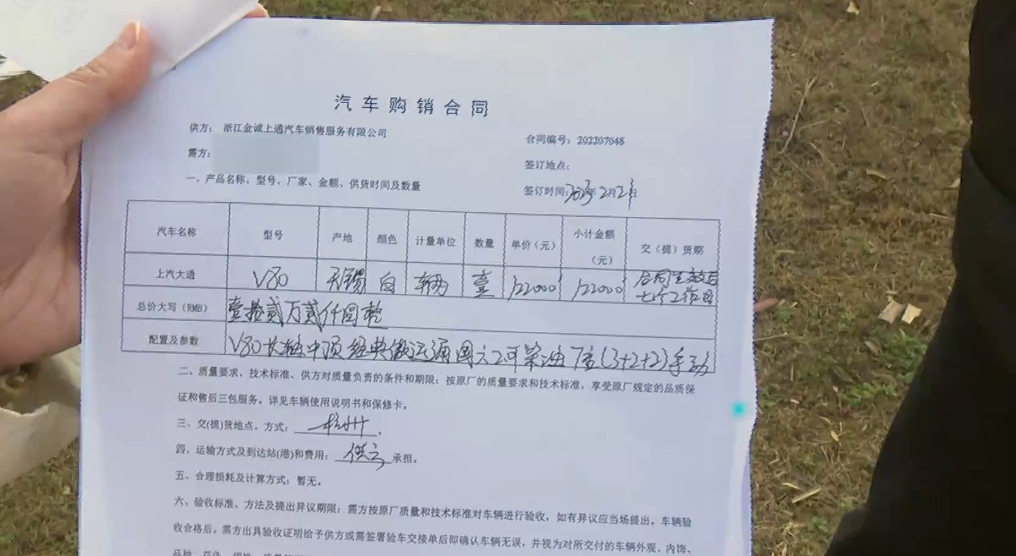 汽车购销合同
供方：浙江金诚上通汽车销售服务有限公司
合同编号：202207048
需方：
签订地点：
一、产品名称、型号、厂家、金额、供货时间及数量
签订时间：2023年2月2日
汽车名称 型号 产地 颜色 计量单位 数量 单价（元） 小计金额（元） 交（提）货期
上汽大通 V80 无锡 白 辆 壹 122000 122000 合同生效后七个工作日
总价大写（RMB） 壹拾贰万贰仟圆整
配置及参数 V80长轴中顶经典傲运通国六 柴油7座（3+2+2）手动
二、质量要求、技术标准、供方对质量负责的条件和期限：按原厂的质量要求和技术标准，享受原厂规定的品质保
证和售后三包服务。详见车辆使用说明书和保修卡。
三、交(提)货地点、方式：杭州.
四、运输方式及到达站(港)和费用：供方承担.
五、合理损耗及计算方式：暂无。
六、验收标准、方法及提出异议期限：需方按原厂质量和技术标准对车辆进行验收，如有异议应当场提出。车辆验
收合格后，需方出具验收证明给予供方或需签署验车交接单后即确认车辆无误，并视为对所交付的车辆外观、内饰、